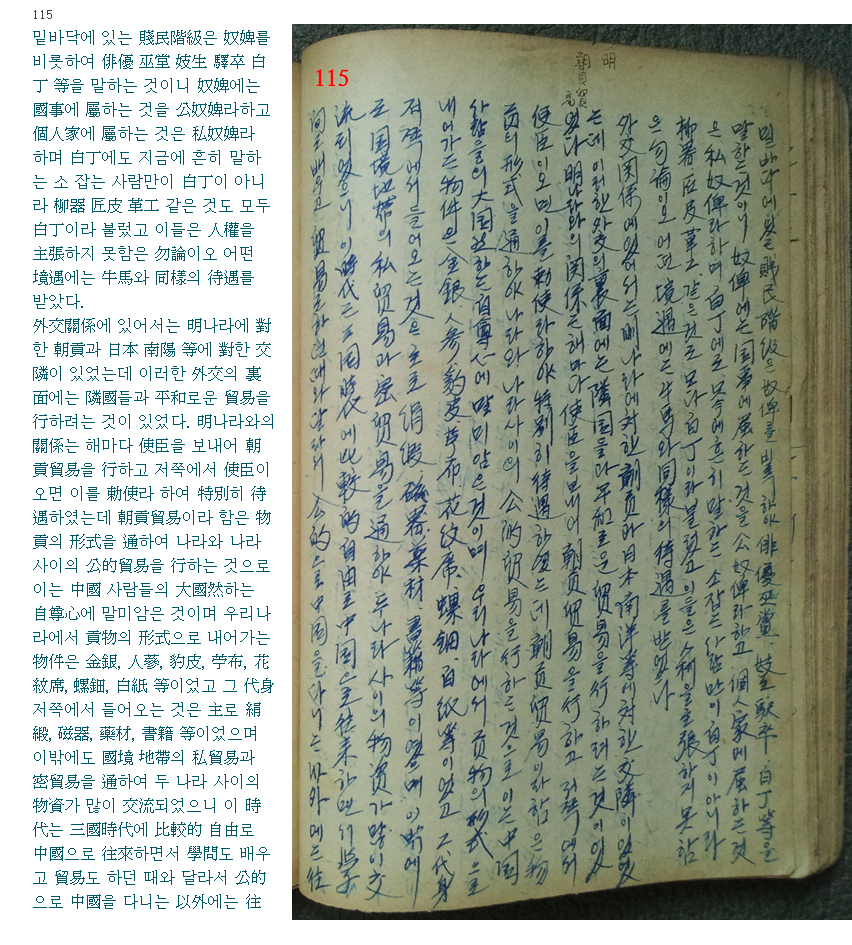 115
밑바닥에 있는 賤民階級은 奴婢를
비롯하여 俳優 巫堂 妓生 驛卒 白
丁 等을 말하는 것이니 奴婢에는
國事에 屬하는 것을 公奴婢라하고
個人家에 屬하는 것은 私奴婢라
하며 白丁에도 지금에 흔히 말하
는 소 잡는 사람만이 白丁이 아니
라 柳器 匠皮 革工 같은 것도 모두
白丁이라 불렀고 이들은 人權을
主張하지 못함은 勿論이오 어떤
境遇에는 牛馬와 同樣의 待遇를
받았다.
外交關係에 있어서는 明나라에 對
한 朝貢과 日本 南陽 等에 對한 交
隣이 있었는데 이러한 外交의 裏
面에는 隣國들과 平和로운 貿易을
行하려는 것이 있었다. 明나라와의
關係는 해마다 使臣을 보내어 朝
貢貿易을 行하고 저쪽에서 使臣이
오면 이를 勅使라 하여 特別히 待
遇하였는데 朝貢貿易이라 함은 物
貢의 形式을 通하여 나라와 나라
사이의 公的貿易을 行하는 것으로
이는 中國 사람들의 大國然하는
自尊心에 말미암은 것이며 우리나
라에서 貢物의 形式으로 내어가는
物件은 金銀, 人蔘, 豹皮, 苧布, 花
紋席, 螺鈿, 白紙 等이었고 그 代身
저쪽에서 들어오는 것은 主로 絹
緞, 磁器, 藥材, 書籍 等이었으며
이밖에도 國境 地帶의 私貿易과
密貿易을 通하여 두 나라 사이의
物資가 많이 交流되었으니 이 時
代는 三國時代에 比較的 自由로
中國으로 往來하면서 學問도 배우
고 貿易도 하던 때와 달라서 公的
으로 中國을 다니는 以外에는 往
115
明
朝貢貿易
밑바닥에 있는 賤民階級은 奴婢를 비롯하야 俳優 巫堂 妓生 驛卒 白丁 等을
말하는것이니 奴婢에는 国事에 屬하는것을 公奴婢라하고 個人家에 屬하는것
은 私奴婢라하며 白丁에도 흔히 말하는 소잡는 사람만이 白丁이아니라
柳器 匠皮 革工 같은것도 모다 白丁이라불렀고 이들은 人權을主張하지 못함
은 勿論이오 어떤 境遇에는 牛馬와 同樣의 待遇를 받았다
外交關係에있어서는 明나라에対한 朝貢과 日本 南洋等에対한 交隣이있었
는데 이러한外交의 裏面에는 隣国들과 平和로운 貿易을 行하려는것이있
었다 明나라와의 関係는 해마다 使臣을보내어 朝貢貿易을行하고 저쪽에서
使臣이오면이를 勅使라하야 特別히 待遇하였는데 朝貢貿易이라함은 物
貢의形式을 通하야 나라와 나라사이의 公的貿易을行하는것으로 이는 中国
사람들의 大国然하는 自尊心에 말미암은것이며 우리나라에서 貢物의形式으로
내어가는物件은 金銀 人蔘 豹皮 苧布 花紋席 螺鈿 白紙等이었고 그代身
저쪽에서들어오는것은 主로 絹緞 磁器 藥材 書籍等이었으며 이밖에
도 国境地帶의 私貿易과 密貿易을 通하야 두나라사이의物資가 많이交
流되었으니 이時代는 三国時代에 比較的自由로 中国으로往来하면서 學
問도 배우고 貿易도하던때와달라서 公的으로 中国을다니는 以外에는往